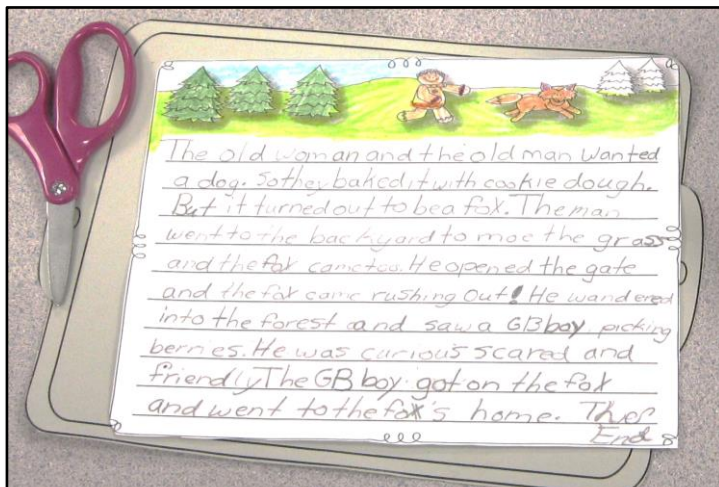 The old woman and the old man wanted
a dog. So they baked it with cookie dough.
But it turned out to be a fox. The man
went to the backyard to moe the grass
and the fox came too. He opened the gate
and the fox came rushing out! He wandered
into the forest and saw a GB boy picking
berries. He was curious scared and
friendly The GB boy got on the fox
and went to the fox's home. The
End